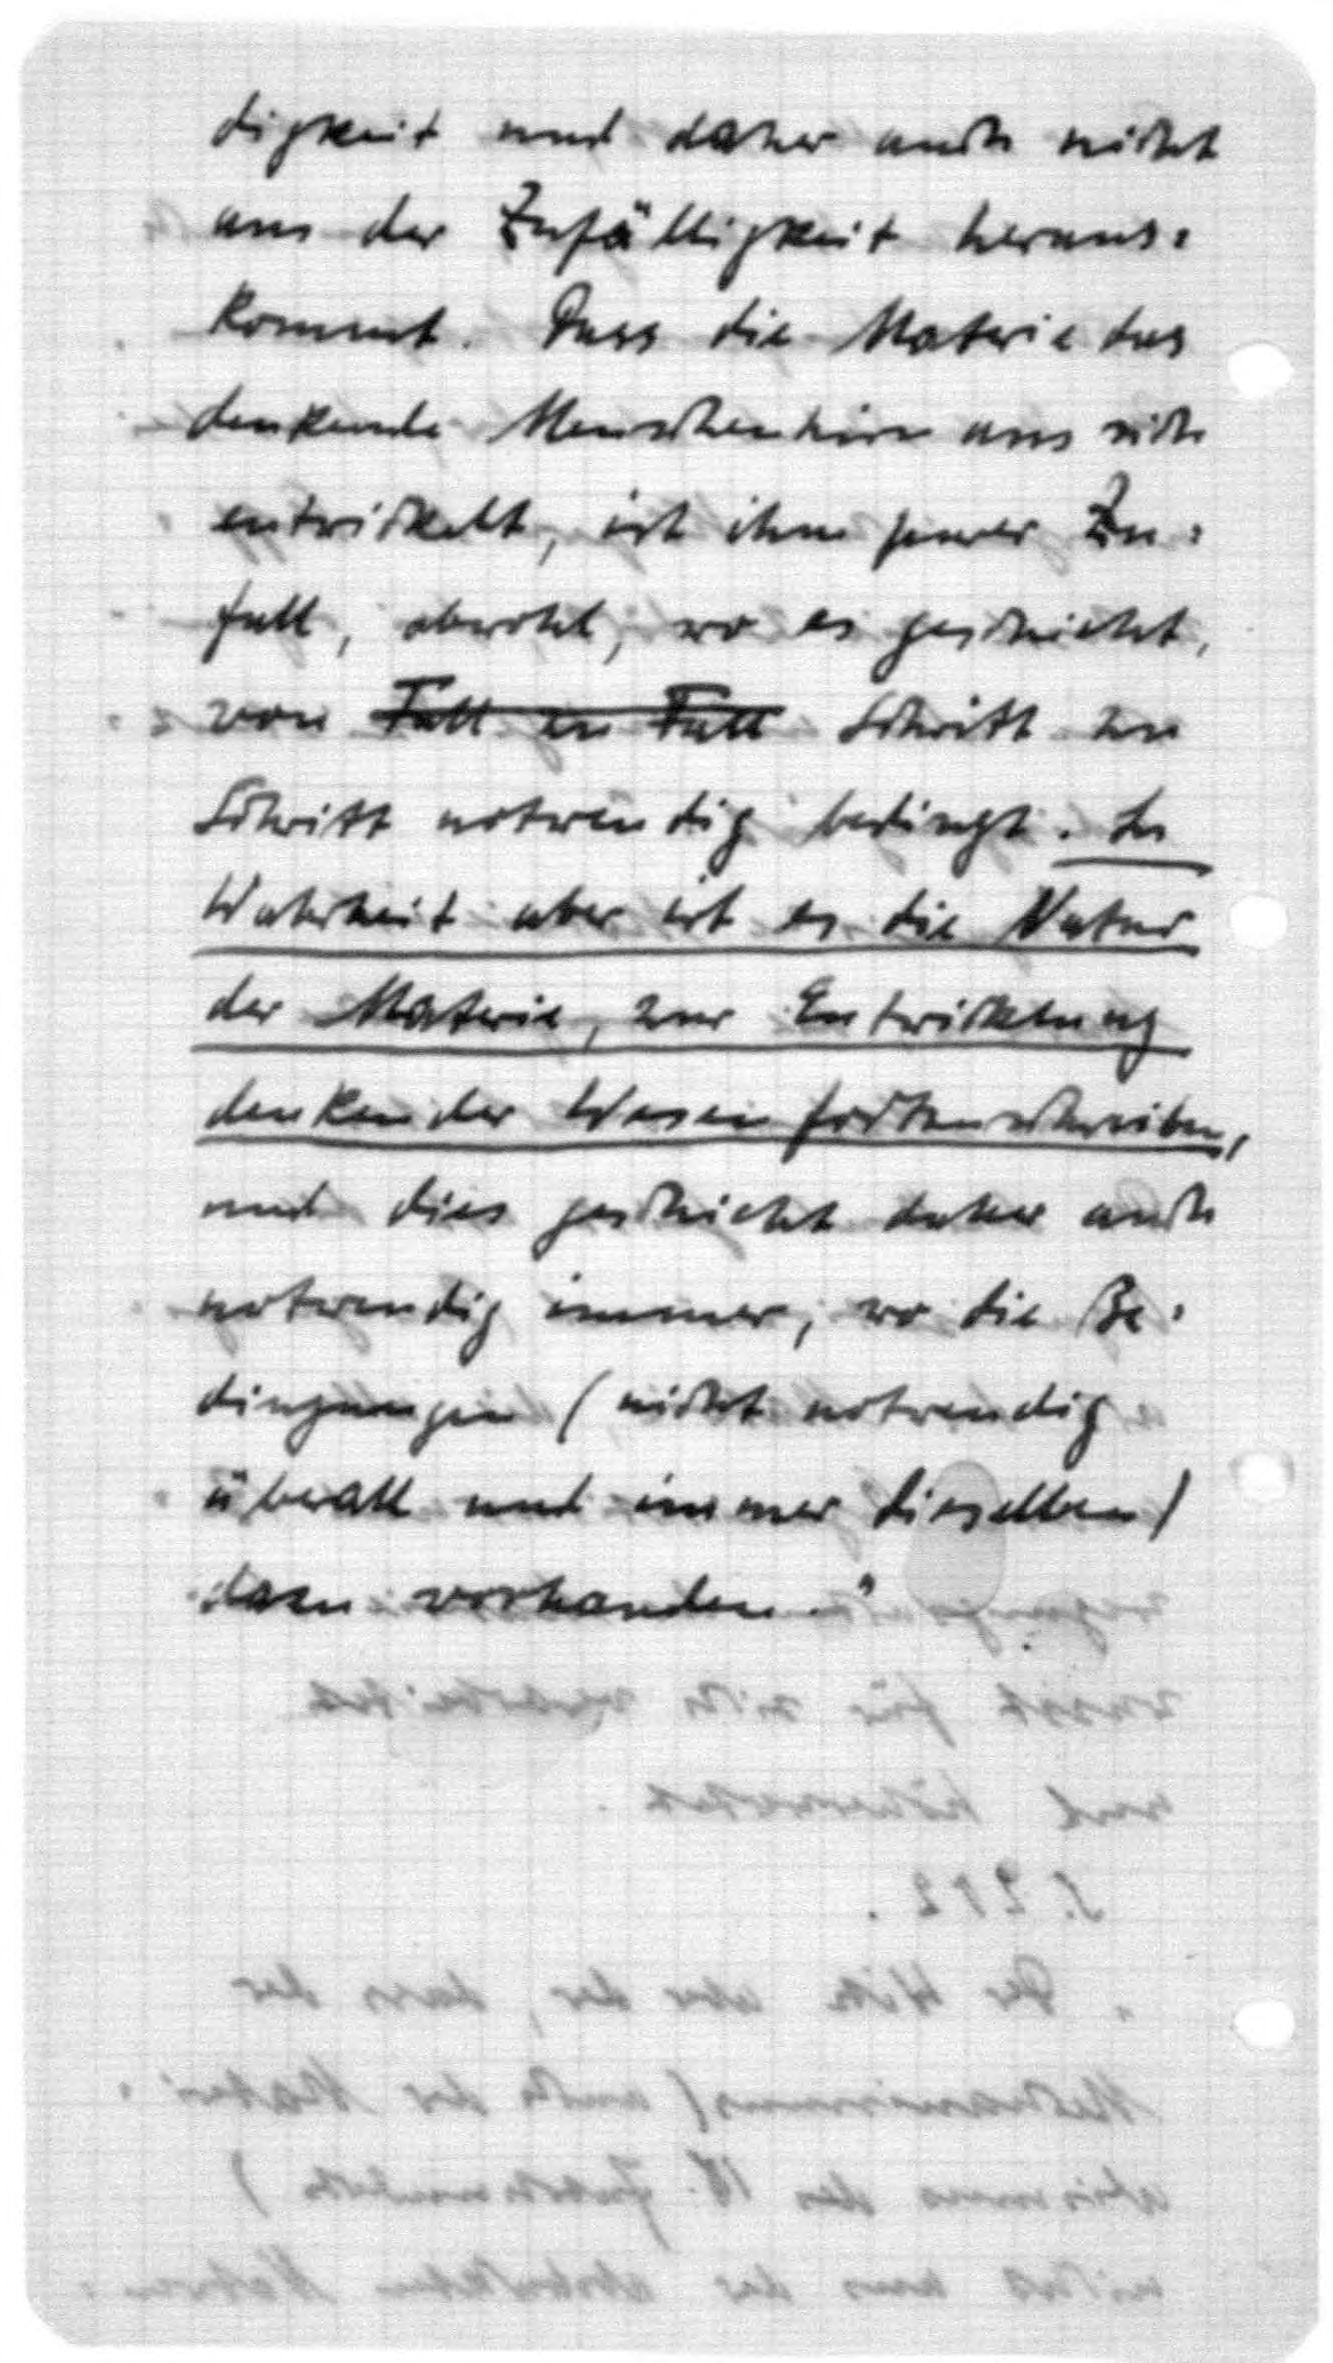 digkeit und daher auch nicht
aus der Zufälligkeit heraus=
kommt. Dass die Materie das
denkende Menschenhirn aus sich
entwickelt, ist ihm purer Zu=
fall, obwohl, wo es geschieht,
von Fall zu Fall Schritt zu
Schritt notwendig bedingt. In
Wahrheit aber ist es die Natur
der Materie, zur Entwicklung
denkender Wesen fortzuschreiten,
und dies geschieht daher auch
notwendig immer, wo die Be=
dingungen (nicht notwendig
überall und immer dieselben)
dazu vorhanden."